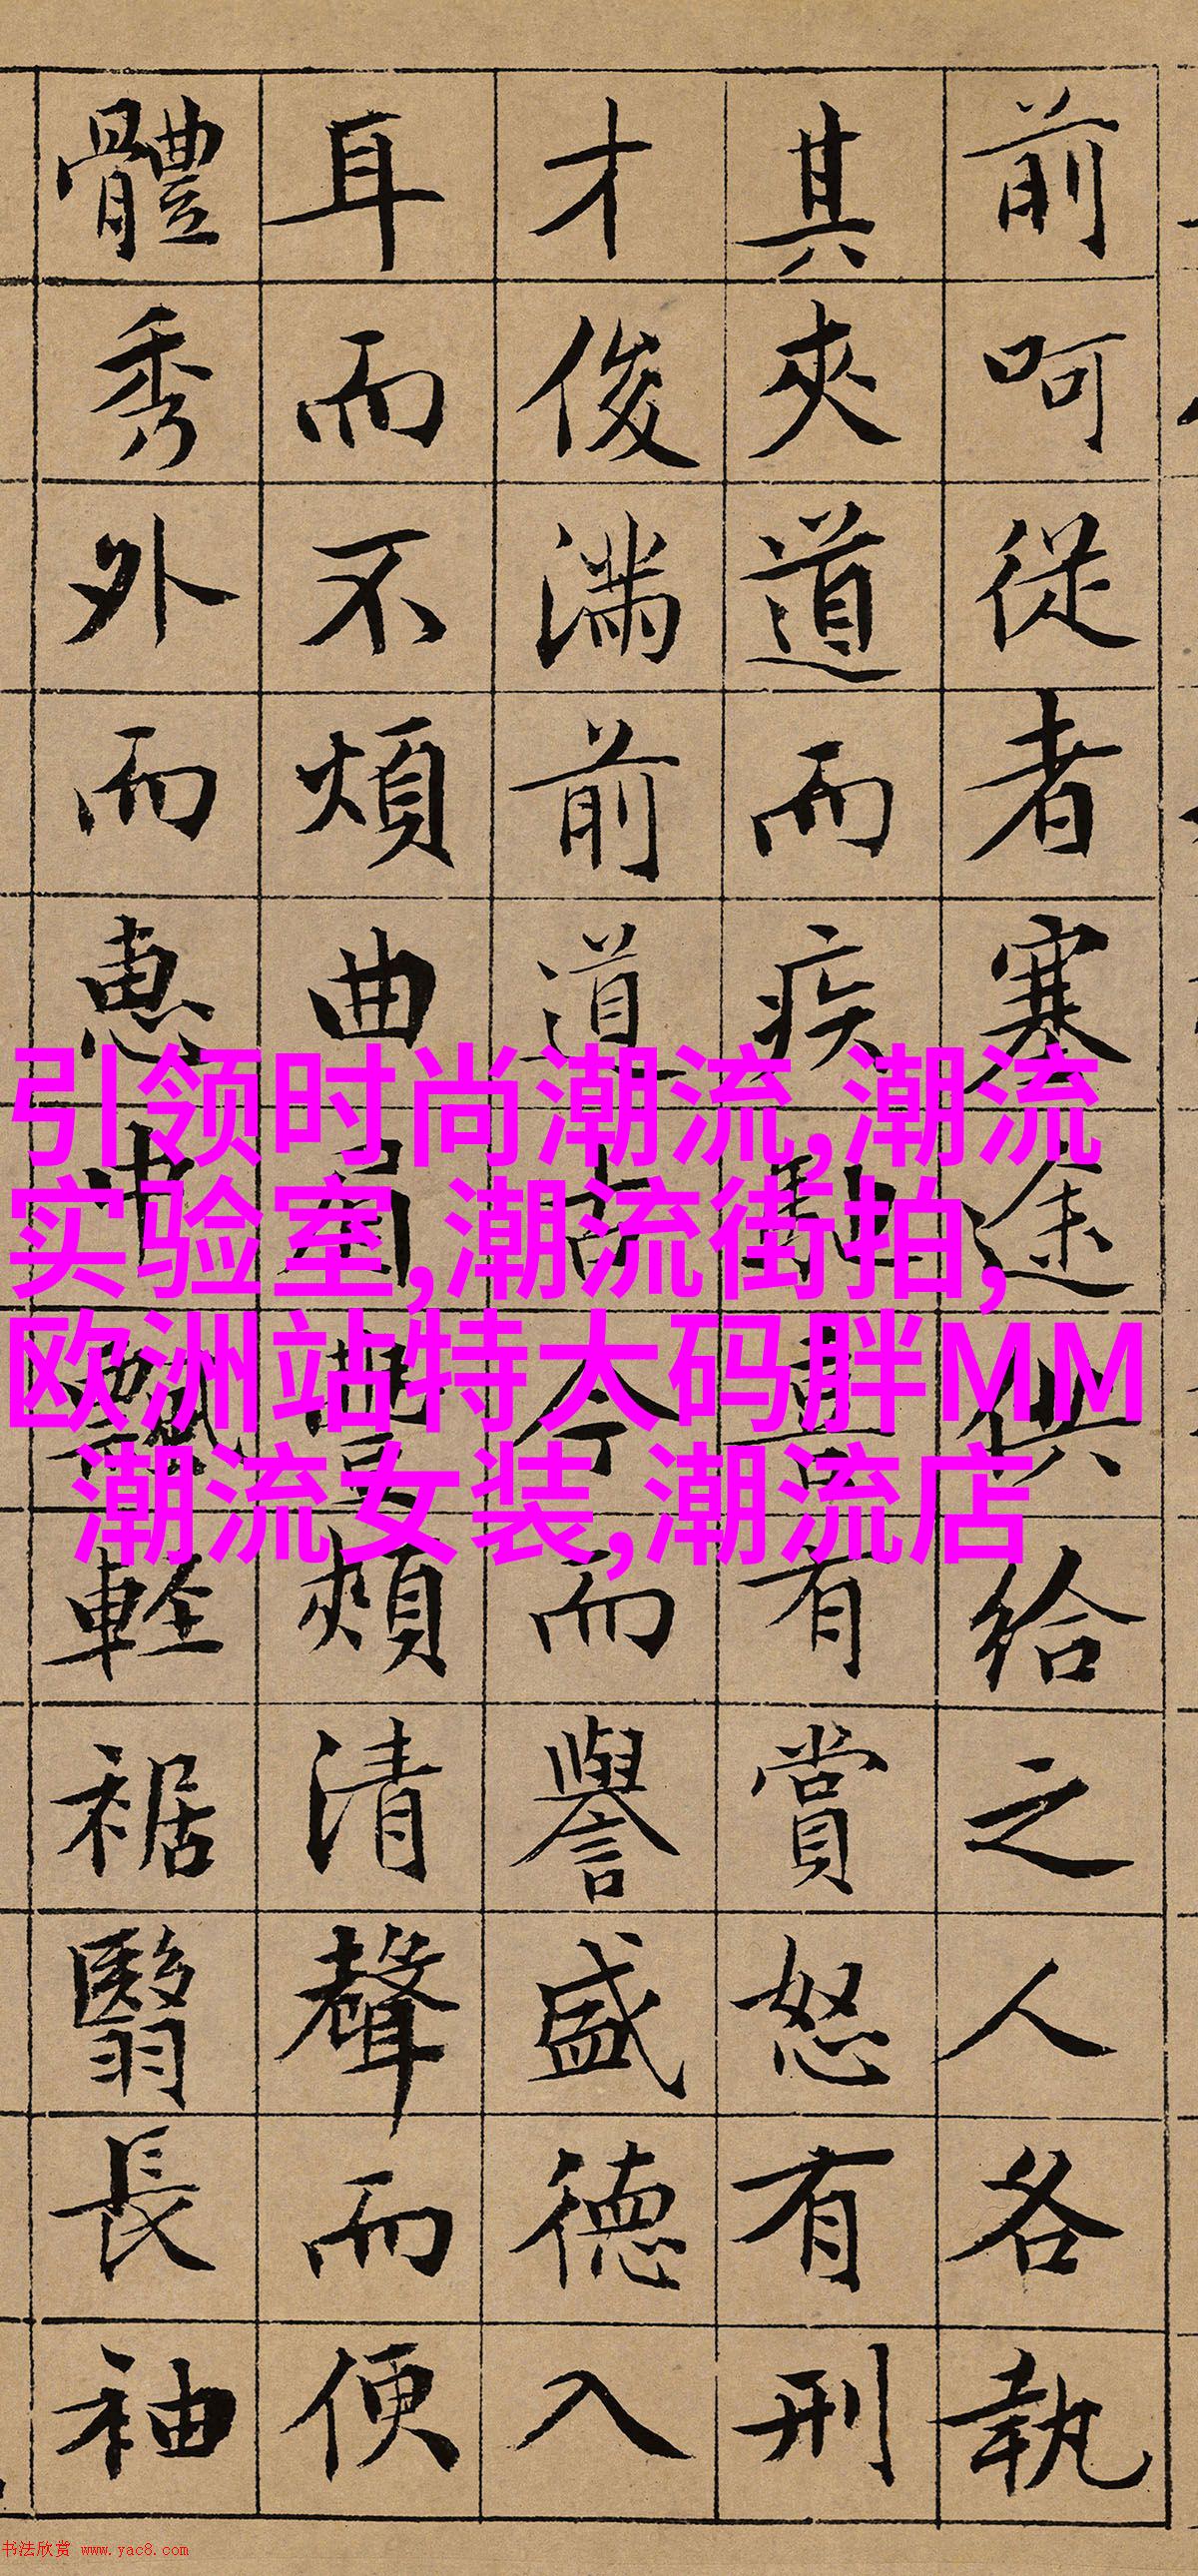 前呵從者塞途供給之人各執
其夾道而疾馳喜有賞怒有刑
才俊滿前道古今而譽盛德入
耳而不煩曲眉豐頰清聲而便
體秀外而惠中飄輕裾翳長袖
引领时尚潮流,潮流
实验室,潮流街拍,
欧洲站特大码胖MM
潮流女装,潮流店
书法欣赏 www.yac8.com